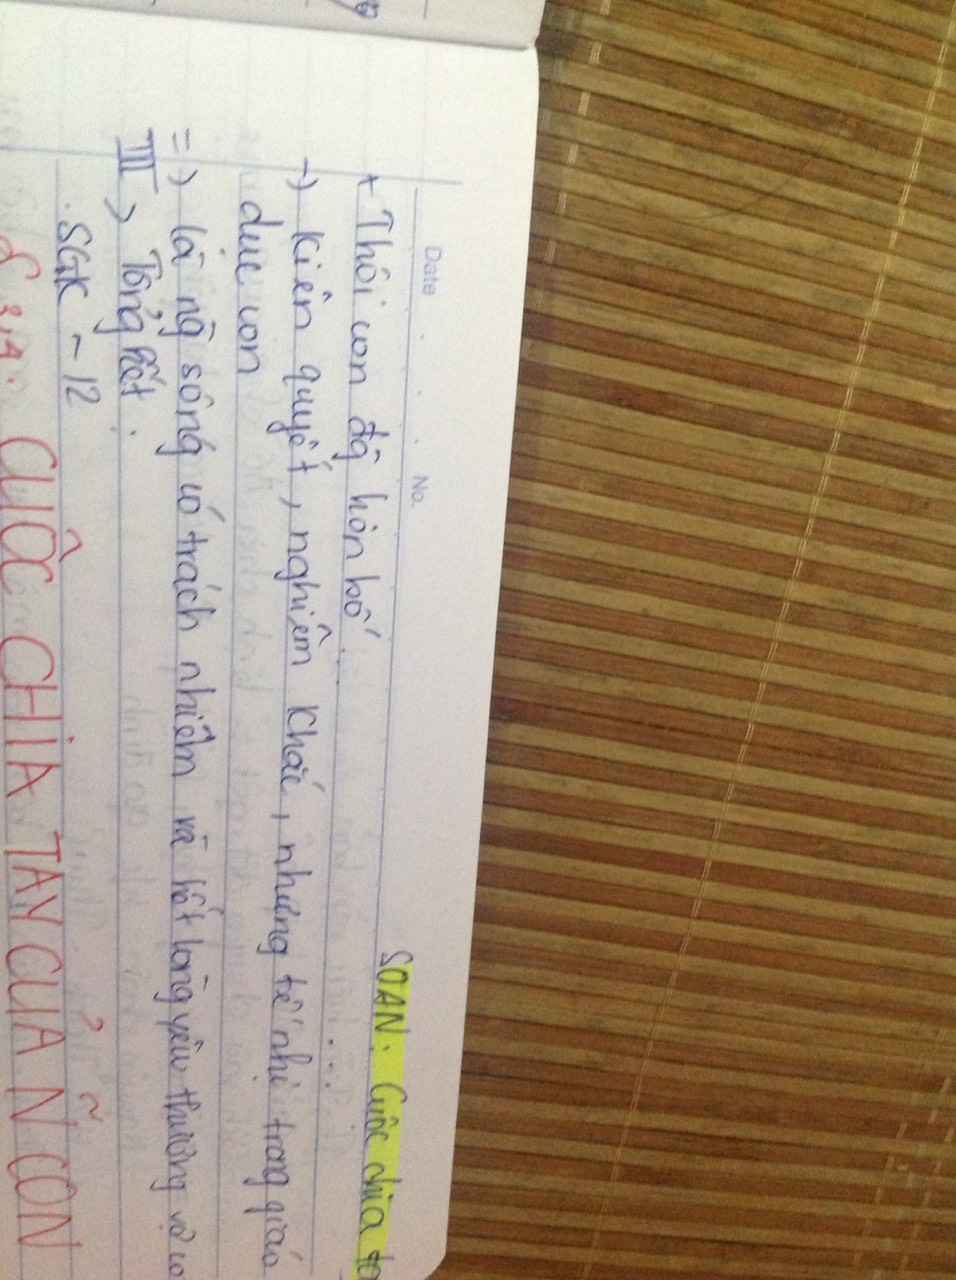 SOẠN: Cuộc chia ta
Date No.
+ Thôi con đg hôn bố...
→ kiên quyết, nghiêm khắc, nhưng tế nhị trong giáo
dục con
=> là ng sống có trách nhiệm và hết lòng yêu thương vợ co
III> Tổng kết.
. SGK - 12
CUỘC CHIA TAY CỦA N~ CON